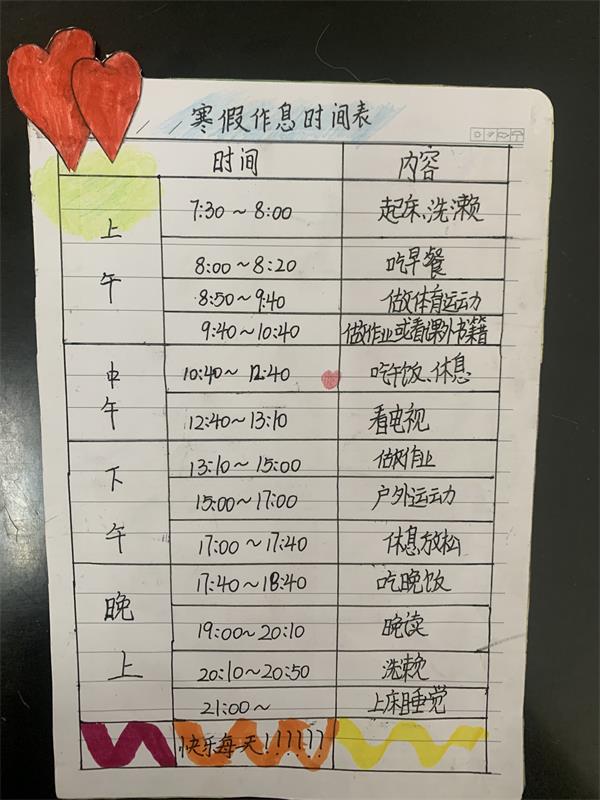 寒假作息时间表
时间 内容
上午
7:30～8:00 起床、洗漱
8:00～8:20 吃早餐
8:50～9:40 做体育运动
9:40～10:40 做作业或看课外书籍
中午
10:40～12:40 吃午饭、休息
12:40～13:10 看电视
下午
13:10～15:00 做作业
15:00～17:00 户外运动
17:00～17:40 休息放松
晚上
17:40～18:40 吃晚饭
19:00～20:10 晚读
20:10～20:50 洗漱
21:00～ 上床睡觉
快乐每天!!!!!!